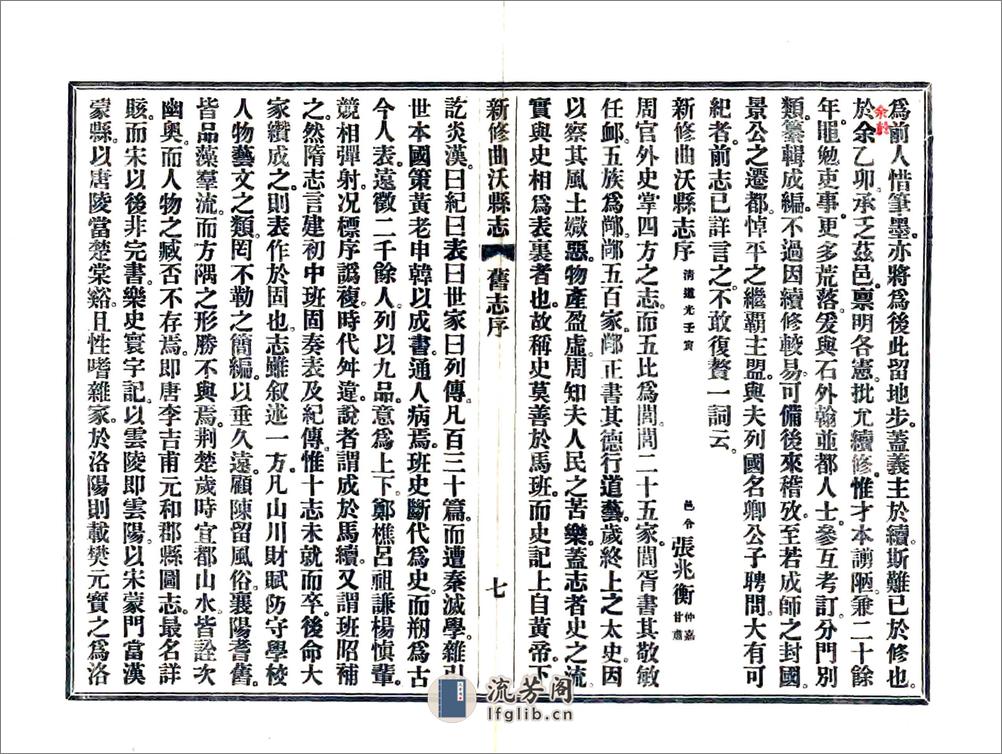 爲前人惜筆墨亦將爲後此留地步蓋義主於續斯難已於修也
余於
於余乙卯承乏茲邑稟明各憲批允續修惟才本譾陋兼二十餘
年黽勉吏事更多荒落爰與石外翰並都人士參互考訂分門別
類纂輯成編不過因續修較易可備後來稽攷至若成師之封國
景公之遷都悼平之繼覇主盟與夫列國名卿公子聘問大有可
紀者前志已詳言之不敢復贅一詞云
新修曲沃縣志序 清道光壬寅 邑令 張兆衡 仲嘉 甘肅
周官外史掌四方之志而五比爲閭閭二十五家閭胥書其敬敏
任卹五族爲鄰鄰五百家鄰正書其德行道藝歲終上之太史因
以察其風土媺惡物產盈虛周知夫人民之苦樂蓋志者史之流
實與史相爲表裏者也故稱史莫善於馬班而史記上自黃帝下
新修曲沃縣志 舊志序 七
訖炎漢曰紀曰表曰世家曰列傳凡百三十篇而遭秦滅學雜引
世本國策黃老申韓以成書通人病焉班史斷代爲史而剏爲古
今人表遠徵二千餘人列以九品意爲上下鄭樵呂祖謙楊愼輩
競相彈射况標序譌複時代舛違說者謂成於馬續又謂班昭補
之然隋志言建初中班固奏表及紀傳惟十志未就而卒後命大
家續成之則表作於固也志雖叙述一方凡山川財賦防守學校
人物藝文之類罔不勒之簡編以垂久遠顧陳留風俗襄陽耆舊
皆品藻羣流而方隅之形勝不與焉荆楚歲時宜都山水皆詮次
幽奥而人物之臧否不存焉即唐李吉甫元和郡縣圖志最名詳
賅而宋以後非完書樂史寰宇記以雲陵即雲陽以宋蒙門當漢
蒙縣以唐陵當楚棠谿且性嗜雜家於洛陽則載樊元寶之爲洛
流芳阁
lfglib.cn